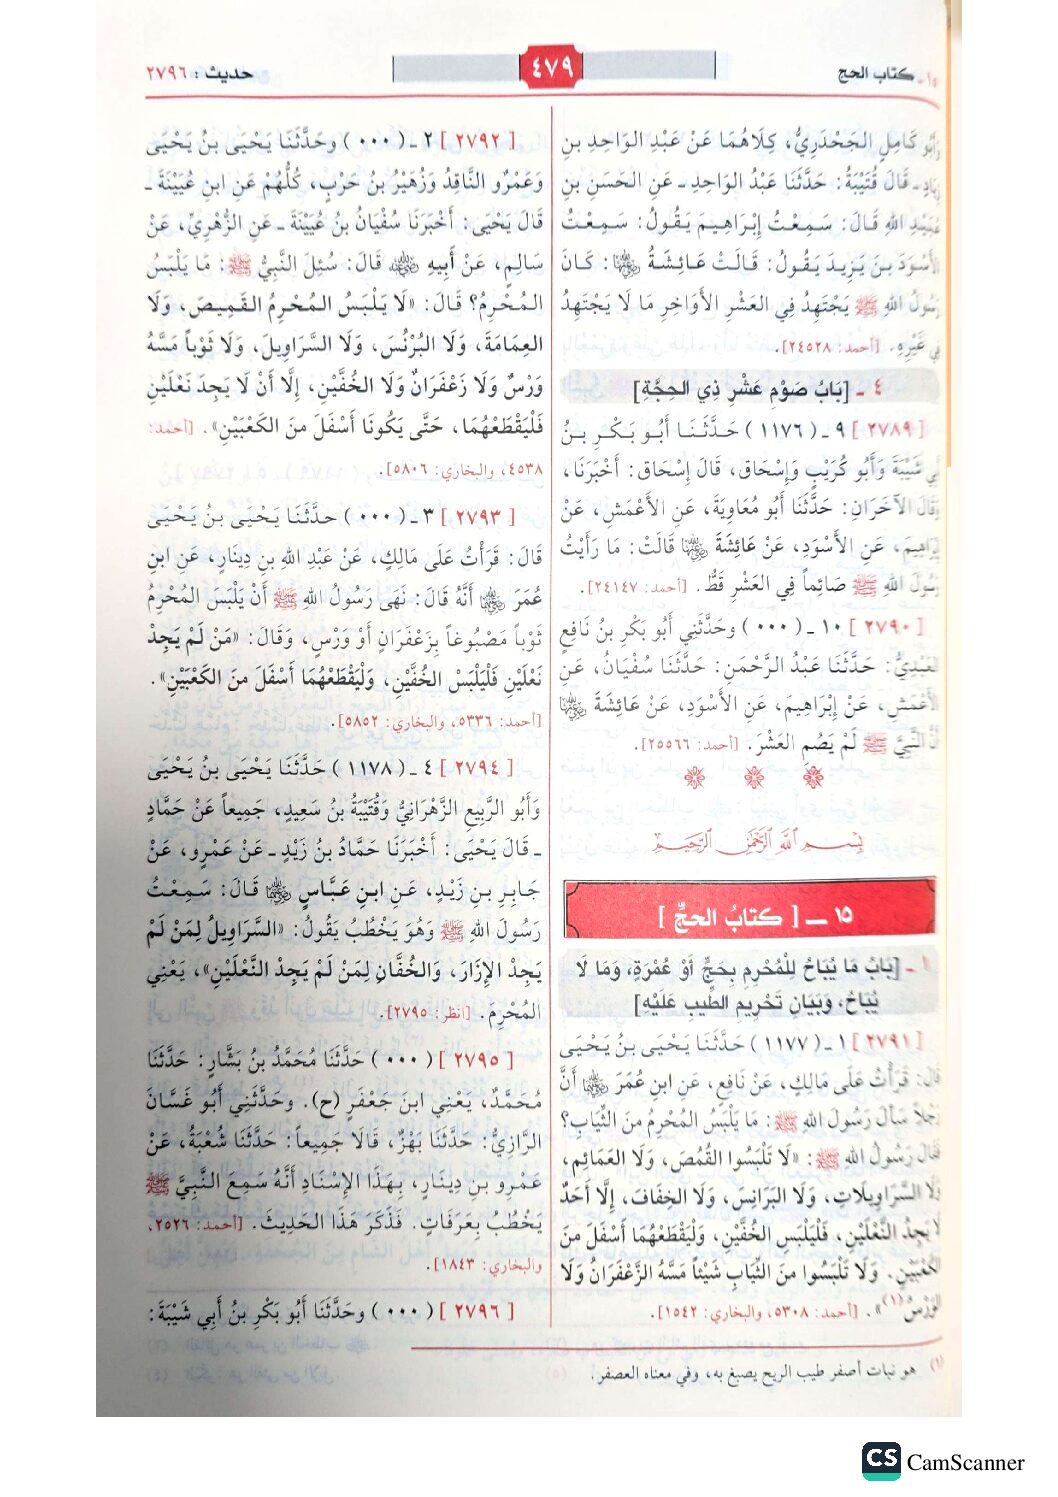 ١٥ ـ كتاب الحج
٤٧٩
حديث : ٢٧٩٦
وَأَبُو كَامِلٍ الجَحْدَرِيُّ، كِلَاهُمَا عَنْ عَبْدِ الوَاحِدِ بنِ
زِيَادٍ ـ قَالَ قُتَيْبَةُ: حَدَّثَنَا عَبْدُ الوَاحِدِ ـ عَنِ الحَسَنِ بنِ
عُبَيْدِ اللهِ قَالَ: سَمِعْتُ إِبْرَاهِيمَ يَقُولُ: سَمِعْتُ
الأَسْوَدَ بنَ يَزِيدَ يَقُولُ: قَالَتْ عَائِشَةُ رضي الله عنها: كَانَ
رَسُولُ اللهِ ﷺ يَجْتَهِدُ فِي العَشْرِ الأَوَاخِرِ مَا لَا يَجْتَهِدُ
فِي غَيْرِهِ. [أحمد: ٢٤٥٢٨].
٤ ـ [بَابُ صَوْمِ عَشْرِ ذِي الحِجَّةِ]
[ ٢٧٨٩ ] ٩ ـ ( ١١٧٦ ) حَدَّثَنَا أَبُو بَكْرِ بنُ
أَبِي شَيْبَةَ وَأَبُو كُرَيْبٍ وَإِسْحَاق، قَالَ إِسْحَاق: أَخْبَرَنَا،
وَقَالَ الآخَرَانِ: حَدَّثَنَا أَبُو مُعَاوِيَةَ، عَنِ الأَعْمَشِ، عَنْ
إِبْرَاهِيمَ، عَنِ الأَسْوَدِ، عَنْ عَائِشَةَ رضي الله عنها قَالَتْ: مَا رَأَيْتُ
رَسُولَ اللهِ ﷺ صَائِماً فِي العَشْرِ قَطُّ. [أحمد: ٢٤١٤٧].
[ ٢٧٩٠ ] ١٠ ـ ( ٠٠٠ ) وحَدَّثَنِي أَبُو بَكْرِ بنُ نَافِعٍ
العَبْدِيُّ: حَدَّثَنَا عَبْدُ الرَّحْمَنِ: حَدَّثَنَا سُفْيَانُ، عَنِ
الأَعْمَشِ، عَنْ إِبْرَاهِيمَ، عَنِ الأَسْوَدِ، عَنْ عَائِشَةَ رضي الله عنها
أَنَّ النَّبِيَّ ﷺ لَمْ يَصُمِ العَشْرَ. [أحمد: ٢٥٥٦٦].
بِسْمِ اللَّهِ الرَّحْمَنِ الرَّحِيمِ
١٥ ـ [ كتابُ الحجِّ ]
١ ـ [بَابُ مَا يُبَاحُ لِلْمُحْرِمِ بِحَجٍّ أَوْ عُمْرَةٍ، وَمَا لَا
يُبَاحُ، وَبَيَانِ تَحْرِيمِ الطِّيبِ عَلَيْهِ]
[ ٢٧٩١ ] ١ ـ ( ١١٧٧ ) حَدَّثَنَا يَحْيَى بنُ يَحْيَى
قَالَ: قَرَأْتُ عَلَى مَالِكٍ، عَنْ نَافِعٍ، عَنِ ابنِ عُمَرَ رضي الله عنهما أَنَّ
رَجُلاً سَأَلَ رَسُولَ اللهِ ﷺ: مَا يَلْبَسُ المُحْرِمُ مِنَ الثِّيَابِ؟
فَقَالَ رَسُولُ اللهِ ﷺ: «لَا تَلْبَسُوا القُمُصَ، وَلَا العَمَائِمَ،
وَلَا السَّرَاوِيلَاتِ، وَلَا البَرَانِسَ، وَلَا الخِفَافَ، إِلَّا أَحَدٌ
لَا يَجِدُ النَّعْلَيْنِ، فَلْيَلْبَسِ الخُفَّيْنِ، وَلْيَقْطَعْهُمَا أَسْفَلَ مِنَ
الكَعْبَيْنِ. وَلَا تَلْبَسُوا مِنَ الثِّيَابِ شَيْئاً مَسَّهُ الزَّعْفَرَانُ وَلَا
الوَرْسُ(١)». [أحمد: ٥٣٠٨، والبخاري: ١٥٤٢].
[ ٢٧٩٢ ] ٢ ـ ( ٠٠٠ ) وحَدَّثَنَا يَحْيَى بنُ يَحْيَى
وَعَمْرٌو النَّاقِدُ وَزُهَيْرُ بنُ حَرْبٍ، كُلُّهُمْ عَنِ ابنِ عُيَيْنَةَ ـ
قَالَ يَحْيَى: أَخْبَرَنَا سُفْيَانُ بنُ عُيَيْنَةَ ـ عَنِ الزُّهْرِيِّ، عَنْ
سَالِمٍ، عَنْ أَبِيهِ رضي الله عنه قَالَ: سُئِلَ النَّبِيُّ ﷺ: مَا يَلْبَسُ
المُحْرِمُ؟ قَالَ: «لَا يَلْبَسُ المُحْرِمُ القَمِيصَ، وَلَا
العِمَامَةَ، وَلَا البُرْنُسَ، وَلَا السَّرَاوِيلَ، وَلَا ثَوْباً مَسَّهُ
وَرْسٌ وَلَا زَعْفَرَانٌ وَلَا الخُفَّيْنِ، إِلَّا أَنْ لَا يَجِدَ نَعْلَيْنِ
فَلْيَقْطَعْهُمَا، حَتَّى يَكُونَا أَسْفَلَ مِنَ الكَعْبَيْنِ». [أحمد:
٤٥٣٨، والبخاري: ٥٨٠٦].
[ ٢٧٩٣ ] ٣ ـ ( ٠٠٠ ) حدَّثَنَا يَحْيَى بنُ يَحْيَى
قَالَ: قَرَأْتُ عَلَى مَالِكٍ، عَنْ عَبْدِ اللهِ بنِ دِينَارٍ، عَنِ ابنِ
عُمَرَ رضي الله عنهما أَنَّهُ قَالَ: نَهَى رَسُولُ اللهِ ﷺ أَنْ يَلْبَسَ المُحْرِمُ
ثَوْباً مَصْبُوغاً بِزَعْفَرَانٍ أَوْ وَرْسٍ، وَقَالَ: «مَنْ لَمْ يَجِدْ
نَعْلَيْنِ فَلْيَلْبَسْ الخُفَّيْنِ، وَلْيَقْطَعْهُمَا أَسْفَلَ مِنَ الكَعْبَيْنِ».
[أحمد: ٥٣٣٦، والبخاري: ٥٨٥٢].
[ ٢٧٩٤ ] ٤ ـ ( ١١٧٨ ) حَدَّثَنَا يَحْيَى بنُ يَحْيَى
وَأَبُو الرَّبِيعِ الزَّهْرَانِيُّ وَقُتَيْبَةُ بنُ سَعِيدٍ، جَمِيعاً عَنْ حَمَّادٍ
ـ قَالَ يَحْيَى: أَخْبَرَنَا حَمَّادُ بنُ زَيْدٍ ـ عَنْ عَمْرٍو، عَنْ
جَابِرِ بنِ زَيْدٍ، عَنِ ابنِ عَبَّاسٍ رضي الله عنهما قَالَ: سَمِعْتُ
رَسُولَ اللهِ ﷺ وَهُوَ يَخْطُبُ يَقُولُ: «السَّرَاوِيلُ لِمَنْ لَمْ
يَجِدْ الإِزَارَ، وَالخُفَّانِ لِمَنْ لَمْ يَجِدْ النَّعْلَيْنِ»، يَعْنِي
المُحْرِمَ. [انظر: ٢٧٩٥].
[ ٢٧٩٥ ] ( ٠٠٠ ) حَدَّثَنَا مُحَمَّدُ بنُ بَشَّارٍ: حَدَّثَنَا
مُحَمَّدٌ، يَعْنِي ابنَ جَعْفَرٍ (ح). وحَدَّثَنِي أَبُو غَسَّانَ
الرَّازِيُّ: حَدَّثَنَا بَهْزٌ، قَالَا جَمِيعاً: حَدَّثَنَا شُعْبَةُ، عَنْ
عَمْرِو بنِ دِينَارٍ، بِهَذَا الإِسْنَادِ أَنَّهُ سَمِعَ النَّبِيَّ ﷺ
يَخْطُبُ بِعَرَفَاتٍ. فَذَكَرَ هَذَا الحَدِيثَ. [أحمد: ٢٥٢٦،
والبخاري: ١٨٤٣].
[ ٢٧٩٦ ] ( ٠٠٠ ) وحَدَّثَنَا أَبُو بَكْرِ بنُ أَبِي شَيْبَةَ:
(١) هو نبات أصفر طيب الريح يصبغ به، وفي معناه العصفر.
CS CamScanner